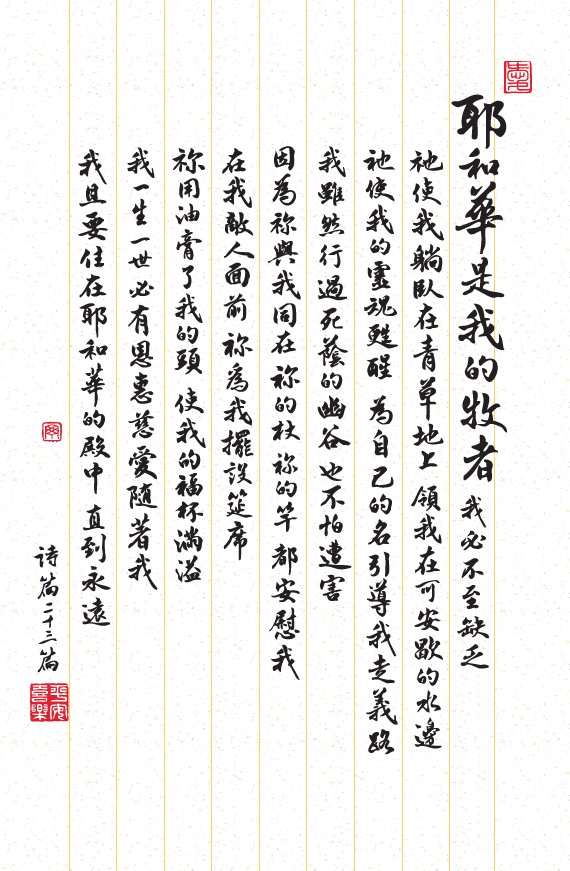 耶和華是我的牧者 我必不至缺乏
祂使我躺臥在青草地上 領我在可安歇的水邊
祂使我的靈魂甦醒 為自己的名引導我走義路
我雖然行過死蔭的幽谷 也不怕遭害
因為祢與我同在 祢的杖 祢的竿 都安慰我
在我敵人面前 祢為我擺設筵席
祢用油膏了我的頭 使我的福杯滿溢
我一生一世必有恩惠慈愛隨著我
我且要住在耶和華的殿中 直到永遠
詩篇二十三篇
平安
喜樂